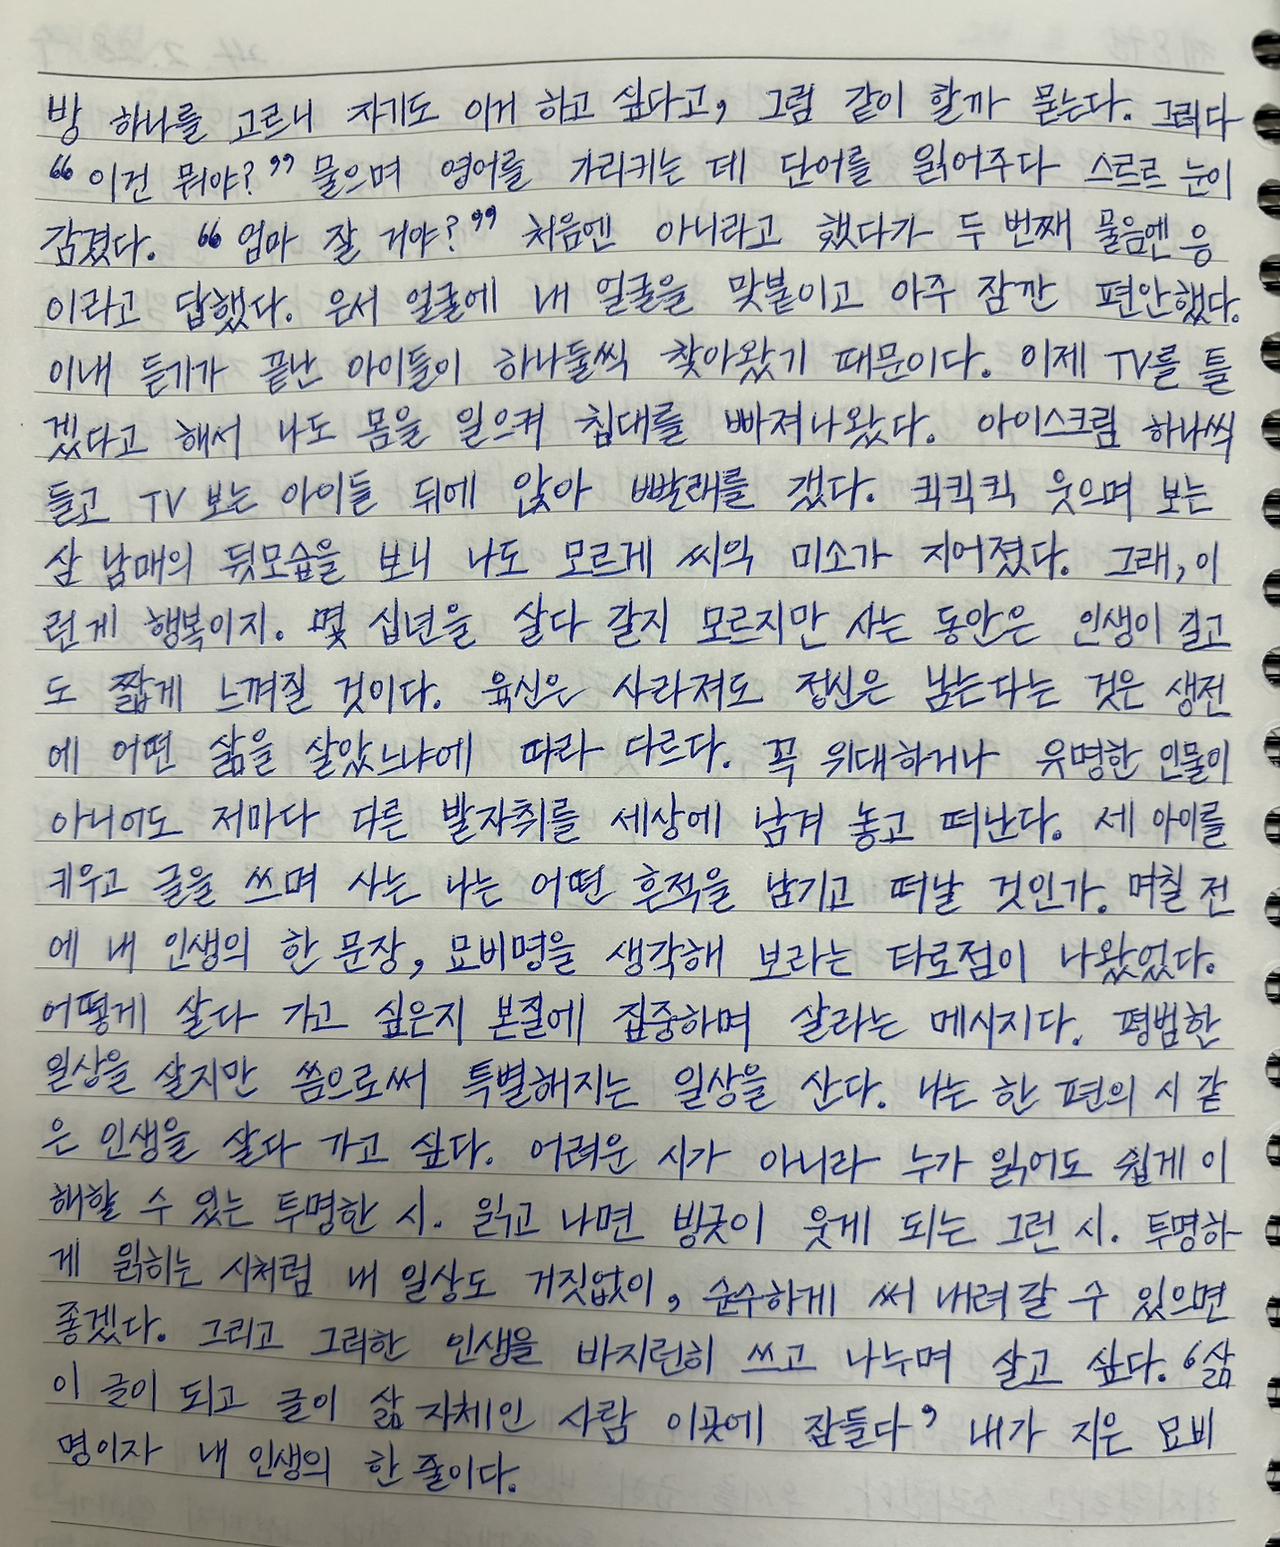 방 하나를 고르니 자기도 이거 하고 싶다고, 그럼 같이 할까 묻는다. 그러다
“이건 뭐야?” 물으며 영어를 가리키는 데 단어를 읽어주다 스르르 눈이
감겼다. “엄마 잘 거야?” 처음엔 아니라고 했다가 두 번째 물음엔 응
이라고 답했다. 은서 얼굴에 내 얼굴을 맞붙이고 아주 잠깐 편안했다.
이내 듣기가 끝난 아이들이 하나둘씩 찾아왔기 때문이다. 이제 TV를 틀
겠다고 해서 나도 몸을 일으켜 침대를 빠져나왔다. 아이스크림 하나씩
들고 TV 보는 아이들 뒤에 앉아 빨래를 갰다. 킥킥킥 웃으며 보는
삼 남매의 뒷모습을 보니 나도 모르게 씨익 미소가 지어졌다. 그래, 이
런게 행복이지. 몇 십년을 살다 갈지 모르지만 사는 동안은, 인생이 길고
도 짧게 느껴질 것이다. 육신은 사라져도 정신은 남는다는 것은 생전
에 어떤 삶을 살았느냐에 따라 다르다. 꼭 위대하거나 유명한 인물이
아니어도 저마다 다른 발자취를 세상에 남겨 놓고 떠난다. 세 아이를
키우고 글을 쓰며 사는 나는 어떤 흔적을 남기고 떠날 것인가. 며칠 전
에 내 인생의 한 문장, 묘비명을 생각해 보라는 타로점이 나왔었다.
어떻게 살다 가고 싶은지 본질에 집중하며 살라는 메시지다. 평범한
일상을 살지만 씀으로써 특별해지는 일상을 산다. 나는 한 편의 시 같
은 인생을 살다 가고 싶다. 어려운 시가 아니라 누가 읽어도 쉽게 이
해할 수 있는 투명한 시. 읽고 나면 빙긋이 웃게 되는 그런 시. 투명하
게 읽히는 시처럼 내 일상도 거짓없이, 순수하게 써 내려갈 수 있으면
좋겠다. 그리고 그러한 인생을 바지런히 쓰고 나누며 살고 싶다. ‘삶
이 글이 되고 글이 삶 자체인 사람 이곳에 잠들다’ 내가 지은 묘비
명이자 내 인생의 한 줄이다.